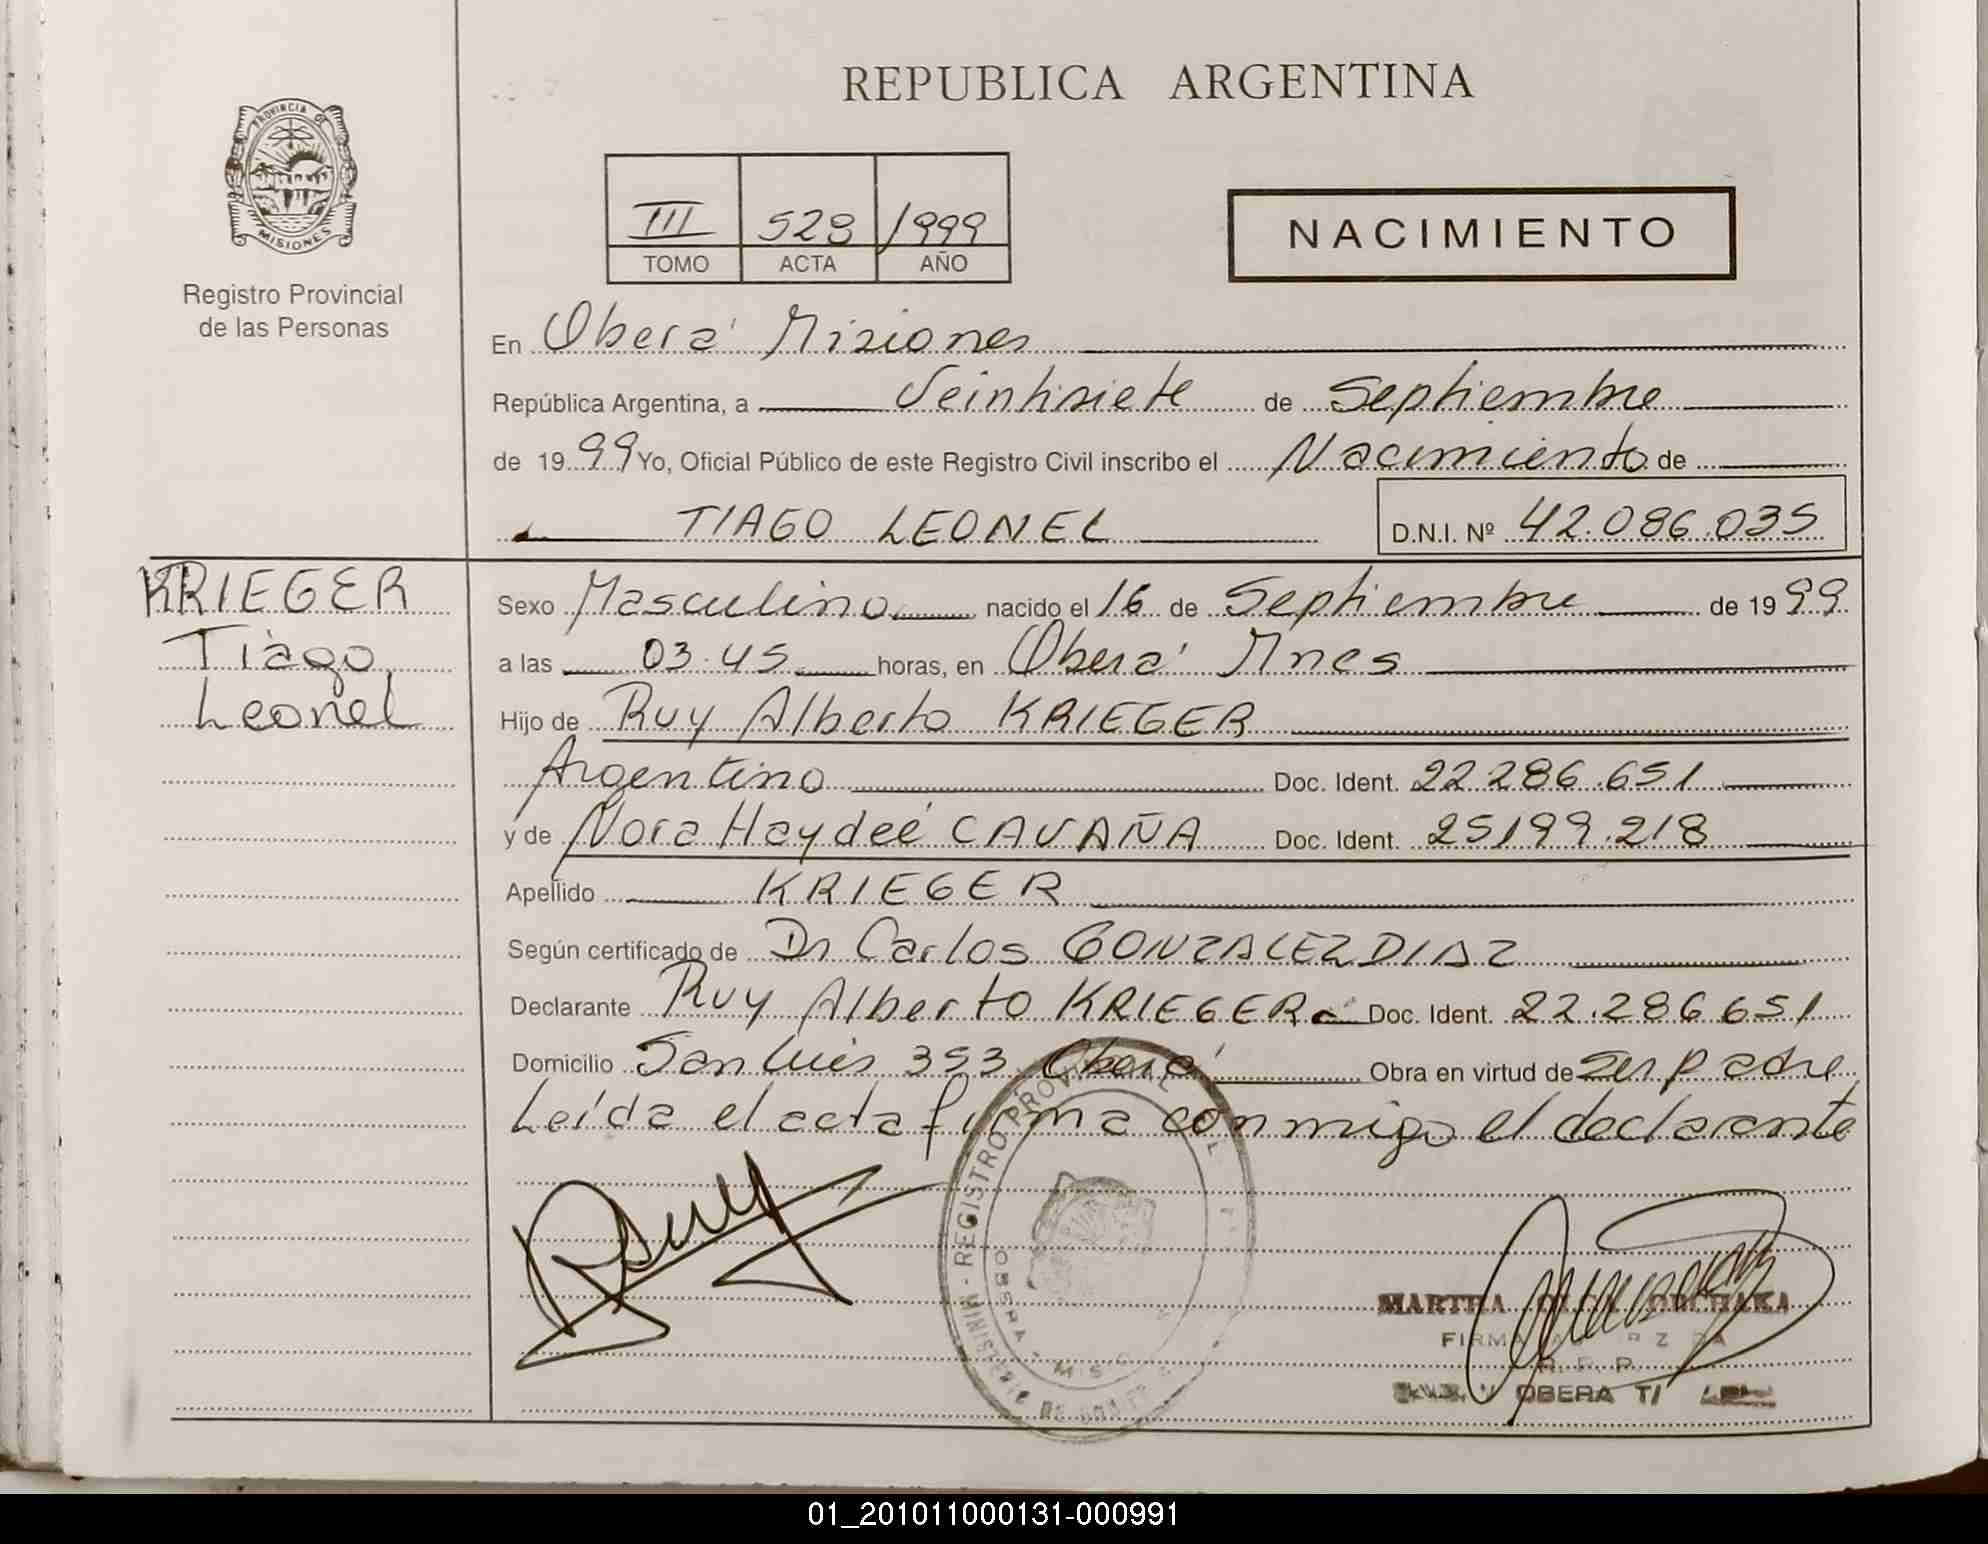 REPUBLICA ARGENTINA
PROVINCIA DE
MISIONES
Registro Provincial
de las Personas
III 528 1999
TOMO ACTA AÑO
NACIMIENTO
En Oberá Misiones
República Argentina, a Veintisiete de Septiembre
de 1999 Yo, Oficial Público de este Registro Civil inscribo el Nacimiento de
TIAGO LEONEL D.N.I. Nº 42.086.035
KRIEGER
Tiago
Leonel
Sexo Masculino nacido el 16 de Septiembre de 1999
a las 03.45 horas, en Oberá Mnes
Hijo de Ruy Alberto KRIEGER
Argentino Doc. Ident. 22.286.651
y de Nora Haydeé CAVAÑA Doc. Ident. 25.199.218
Apellido KRIEGER
Según certificado de Dr Carlos GONZALEZ DIAZ
Declarante Ruy Alberto KRIEGER Doc. Ident. 22.286.651
Domicilio San Luis 353 Oberá Obra en virtud de ser padre
Leída el acta firma conmigo el declarante
REGISTRO PROVINCIAL DE
MARTHA
FIRMA
R. P. P.
OBERA
01_201011000131-000991